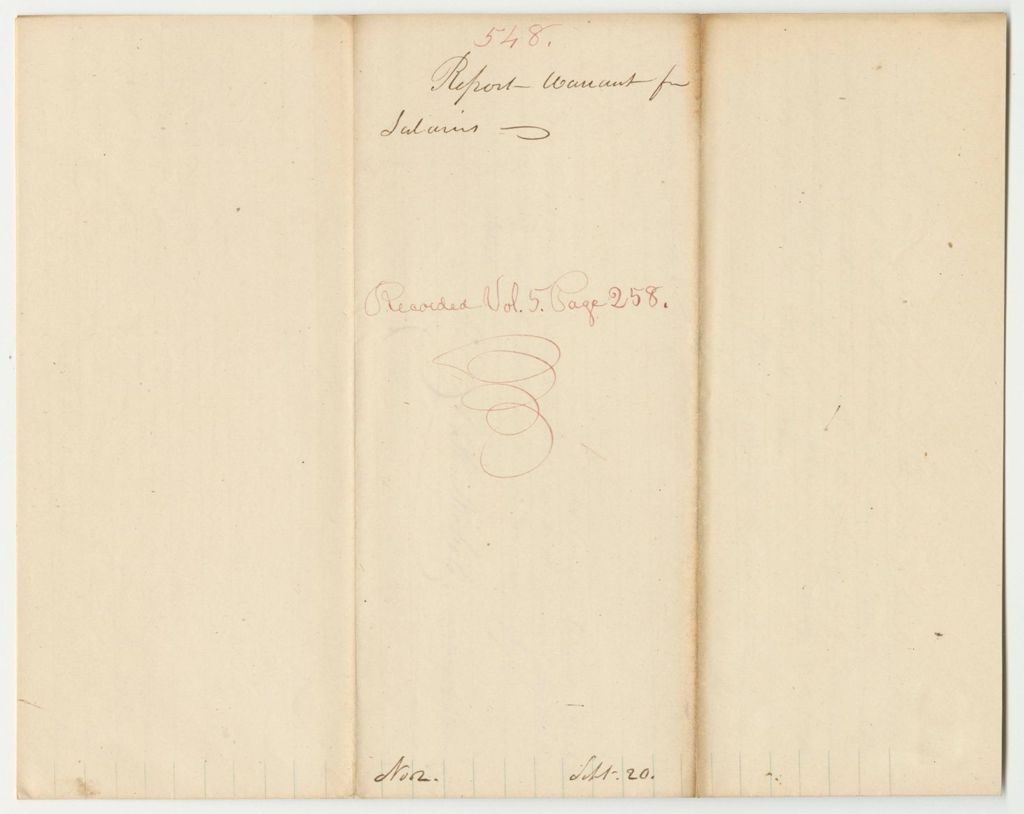 548.
Report Warrant for
Salaries
Recorded Vol. 5. Page 258.
No 2. Sept. 20.